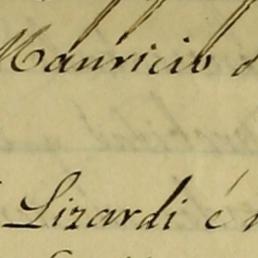 Mauricio
Lizardi é